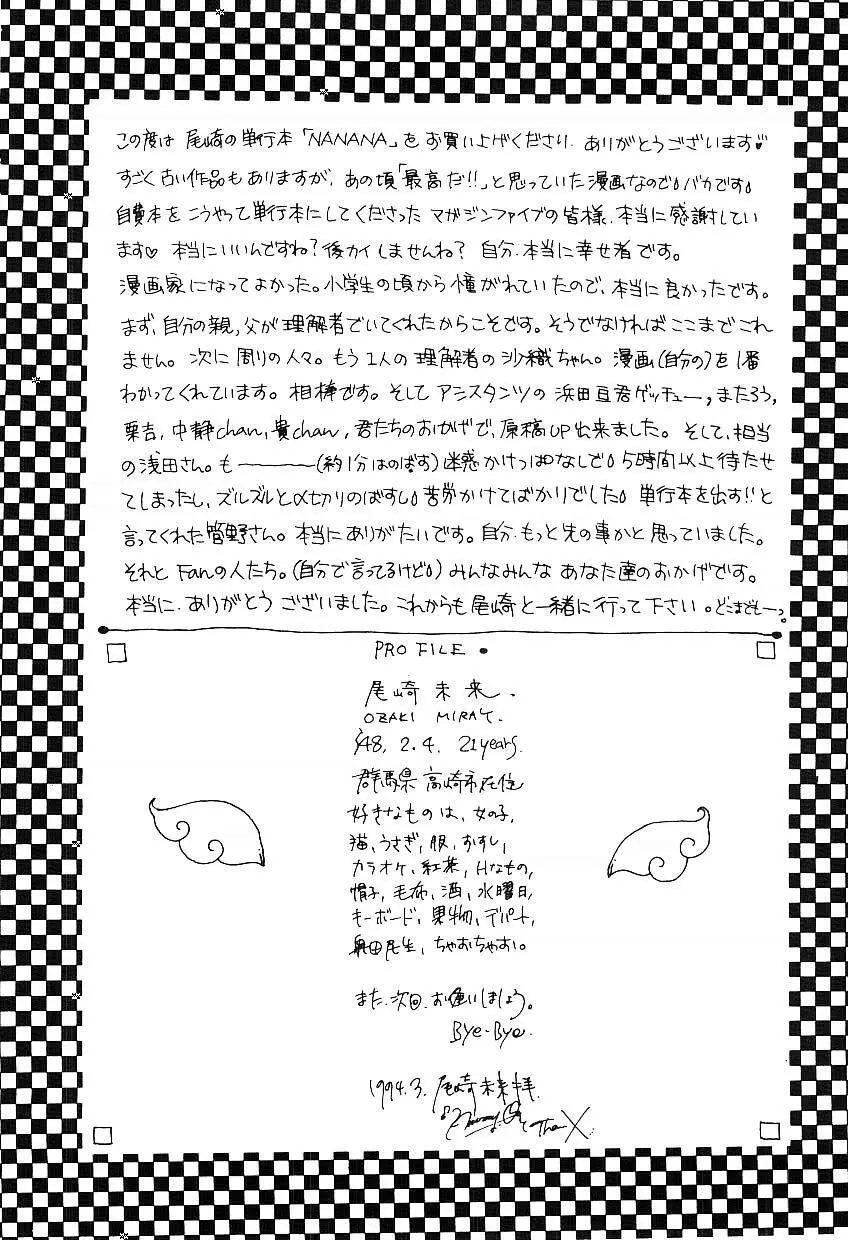 この度は 尾崎の単行本「NANANA」を お買い上げくださり、ありがとうございます♥
すごく古い作品もありますが、あの頃「最高だ!!」と思っていた漫画なので、バカです。
自費本を こうやって単行本にしてくださった マガジンファイブの皆様、本当に感謝してい
ます♡ 本当にいいんですね？後カイしませんね？ 自分、本当に幸せ者です。
漫画家になってよかった。小学生の頃から憧がれていたので、本当に良かったです。
まず、自分の親。父が理解者でいてくれたからこそです。そうでなければここまでこれ
ません。次に 周りの人々。もう1人の理解者の沙織ちゃん。漫画(自分の)を1番
わかってくれています。相棒です。そして アシスタンツの 浜田亘君ゲッチュー, またろう,
栗吉, 中静chan, 貴chan, 君たちのおかげで、原稿UP出来ました。そして、担当
の浅田さん。も————(約1分はのばす)迷惑かけっぱなしで、5時間以上待たせ
てしまったし、ズルズルと〆切りのばすし、苦労かけてばかりでした。単行本を出す!!と
言ってくれた菅野さん。本当にありがたいです。自分、もっと先の事かと思っていました。
それと Fanの人たち。(自分で言ってるけど)みんなみんな あなた達のおかげです。
本当に、ありがとう ございました。これからも尾崎と一緒に行って下さい。どこまでも—っ。
PRO FILE
尾崎 未来
OZAKI MIRAY.
'48. 2. 4. 21years.
群馬県 高崎市在住
好きなものは、女の子,
猫, うさぎ, 服, おすし,
カラオケ, 紅茶, Hなもの,
帽子, 毛布, 酒, 水曜日,
キーボード, 果物, デパート,
奥田民生, ちゃおちゃお。
また、次回、お逢いしましょう。
Bye-Bye.
1994.3. 尾崎未来拝